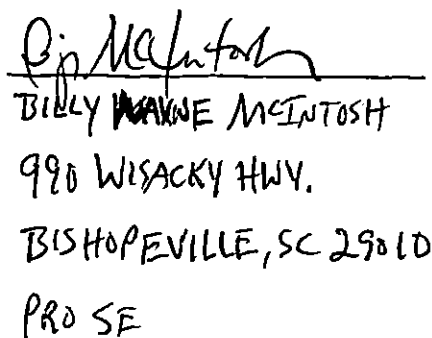 B.J. McIntosh
BILLY WAYNE MCINTOSH
990 WISACKY HWY.
BISHOPEVILLE, SC 29010
PRO SE